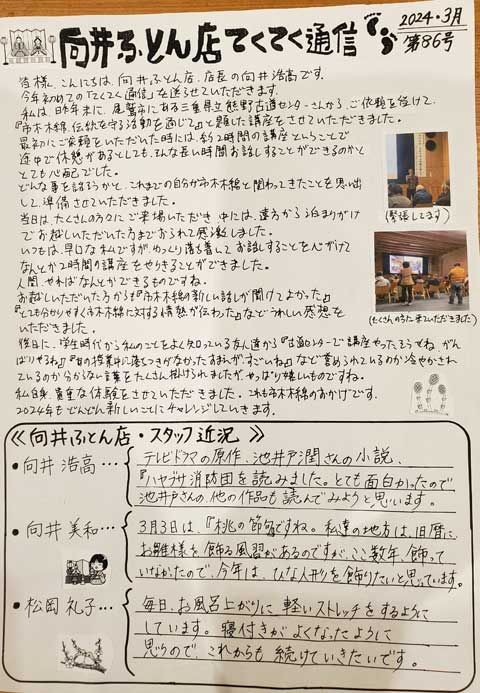 2024・3月
第86号
向井ふとん店てくてく通信
皆様、こんにちは、向井ふとん店、店長の向井浩高です。
今年初めての『てくてく通信』を送らせていただきます。
私は、昨年末に、尾鷲市にある三重県立熊野古道センターさんから、ご依頼を受けて、
『市木木綿、伝統を守る活動を通じて』と題した講座をさせていただきました。
最初にご依頼をいただいた時には、約2時間の講座ということで
途中で休憩があるとしても、そんな長い時間お話しすることができるのかと
とても心配でした。
どんな事を話そうかと、これまでの自分が市木木綿と関わってきたことを思い出
して、準備させていただきました。
当日は、たくさんの方々にご来場いただき、中には、遠方から泊まりがけ
でお越しいただいた方までおられて感激しました。
いつもは、早口な私ですが、ゆっくり落ち着いてお話しすることを心がけて
なんとか2時間の講座をやりきることができました。
人間、やればなんとかできるものですね。
お越しいただいた方からも『市木木綿の新しい話しが聞けてよかった』
『とても分かりやすく市木木綿に対する情熱が伝わった』などうれしい感想を
いただきました。
後日に、学生時代から私のことをよく知っている友人達から『古道センターで講座やったそうやね、がん
ばりやるね』『昔の授業中に落ちつきがなかったおまえが、すごいね』などと褒められているのか冷やかされ
ているのか分からない言葉をたくさん掛けられましたが、やっぱり嬉しいものですね。
私自身、貴重な体験をさせていただきました。これも市木木綿のおかげです。
2024年もどんどん新しいことにチャレンジしていきます。
(緊張してます)
(たくさんの方に来ていただきました)
≪向井ふとん店・スタッフ近況≫
・向井 浩高…
テレビドラマの原作、池井戸潤さんの小説、
『ハヤブサ消防団を読みました。とても面白かったので
池井戸さんの、他の作品も読んでみようと思います。
・向井 美和…
3月3日は、『桃の節句』ですね。私達の地方は、旧暦に、
お雛様を飾る風習があるのですが、ここ数年、飾って
いなかったので、今年は、ひな人形を飾りたいと思っています。
・松岡 礼子…
毎日、お風呂上がりに軽いストレッチをするように
しています。寝付きがよくなったように
思うので、これからも続けていきたいです。